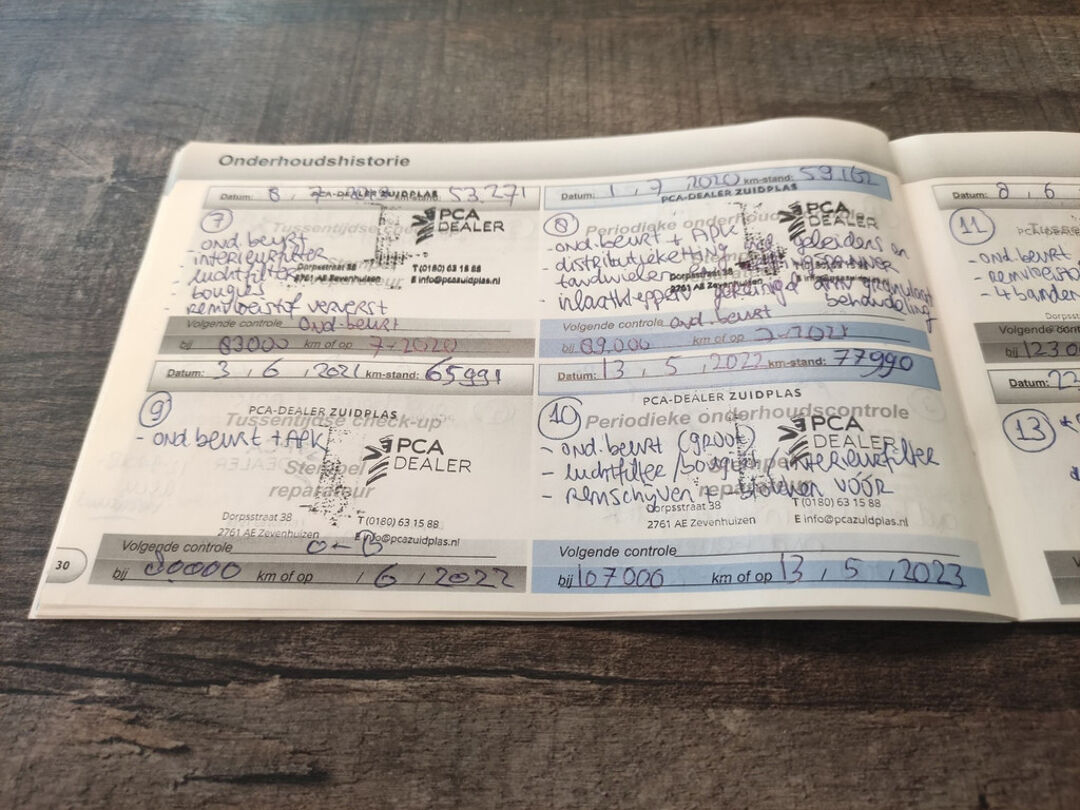 Onderhoudshistorie
Datum: 8, 7 km-stand: 53.271
PCA-DEALER ZUIDPLAS
7
PCA
DEALER
Tussentijdse check-up
- ond. beurt
- interieurfilter
- luchtfilter
- bougies
- remvloeistof ververst
Stempel
Dorpsstraat 38 T (0180) 63 15 88
2761 AE Zevenhuizen E info@pcazuidplas.nl
Volgende controle ond. beurt
bij 83000 km of op 7-2020
Datum: 1, 7, 2020 km-stand: 59.162
PCA-DEALER ZUIDPLAS
8
PCA
DEALER
Periodieke onderhoudscontrole
- ond. beurt + APK
- distributieketting geleiders en
tandwielen en spanner
- inlaatkleppen gereinigd dmv granulaat
behandeling
Dorpsstraat 38
2761 AE Zevenhuizen
Volgende controle ond. beurt
bij 89.000 km of op 7-2021
Datum: 3, 6, 2021 km-stand: 65991
PCA-DEALER ZUIDPLAS
9
Tussentijdse check-up
- ond. beurt + APK
PCA
DEALER
Stempel
reparateur
Dorpsstraat 38 T (0180) 63 15 88
2761 AE Zevenhuizen E info@pcazuidplas.nl
Volgende controle o-b
bij 80000 km of op , 6, 2022
Datum: 13, 5, 2022 km-stand: 77990
PCA-DEALER ZUIDPLAS
10
Periodieke onderhoudscontrole
PCA
DEALER
- ond. beurt (groot)
- luchtfilter/bougies/interieurfilter
- remschijven + blokken vóór
Stempel
reparateur
Dorpsstraat 38 T (0180) 63 15 88
2761 AE Zevenhuizen E info@pcazuidplas.nl
Volgende controle
bij 107000 km of op 13, 5, 2023
30
Datum: 8, 6
11
- ond. beurt
- remvloeistof
- 4 banden
Dorpsst
Volgende contr
bij 123.0
Datum: 22
13